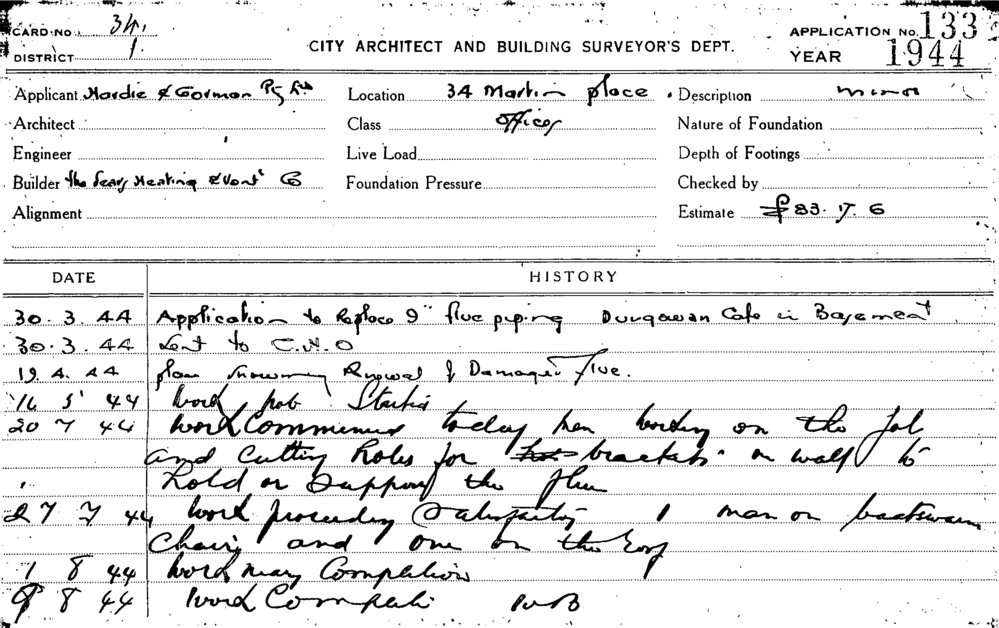 CARD NO. 34.
DISTRICT 1
CITY ARCHITECT AND BUILDING SURVEYOR'S DEPT.
APPLICATION NO. 133
YEAR 1944
Applicant Hardie & Gorman Pty Ltd
Location 34 Martin place
Description minor
Architect
Class Offices
Nature of Foundation
Engineer
Live Load
Depth of Footings
Builder Heating & Vent Co
Foundation Pressure
Checked by
Alignment
Estimate £83. 17. 6
DATE HISTORY
30. 3. 44 Application to Replace 9" flue piping Cafe in Basement
30. 3. 44 Sent to C.H.O
19. 4. 44 plan showing Renewal of Damaged Flue.
16 5 44 work not Started
20 7 44 work Commenced today men working on the Job
and Cutting holes for brackets on wall to
hold or Support the flue
27 7 44 work proceeding Satisfactory 1 man on boatswain
Chair and one on the Roof
1 8 44 work near Completion
9 8 44 work Complete